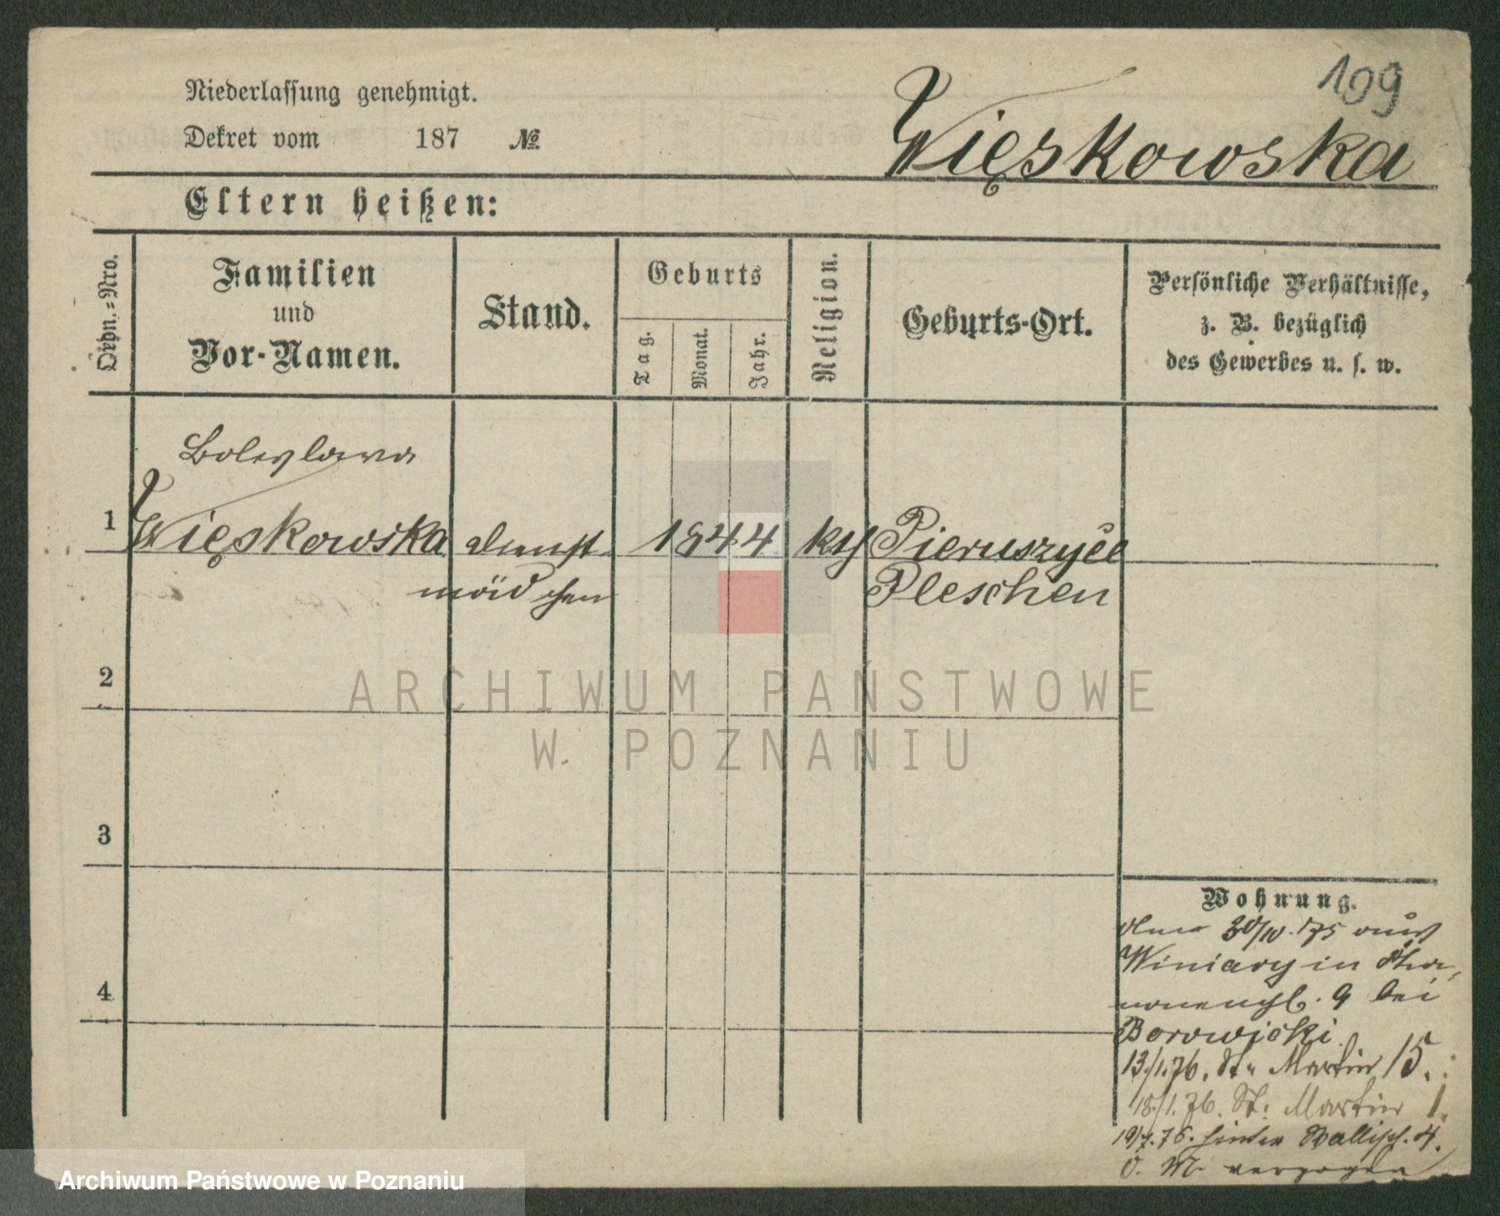 109
Niederlassung genehmigt.
Dekret vom 187 №
Więskowska
Eltern heißen:
Ordn.=Nro.
Familien
und
Vor-Namen.
Stand.
Geburts
Tag.
Monat.
Jahr.
Religion.
Geburts-Ort.
Persönliche Verhältnisse,
z. B. bezüglich
des Gewerbes u. s. w.
Boleslawa
1 Więskowska dienst 1844 kth Pieruszyce
mädchen Pleschen
2
3
4
Wohnung.
30/IV. 75 aus
Winiary in
9 bei
Borowicki
13/1.76. St. Martin 15.
18/1.76. St. Martin 1.
hinter Wallisch. 4.
verzogen
ARCHIWUM PAŃSTWOWE
W POZNANIU
Archiwum Państwowe w Poznaniu